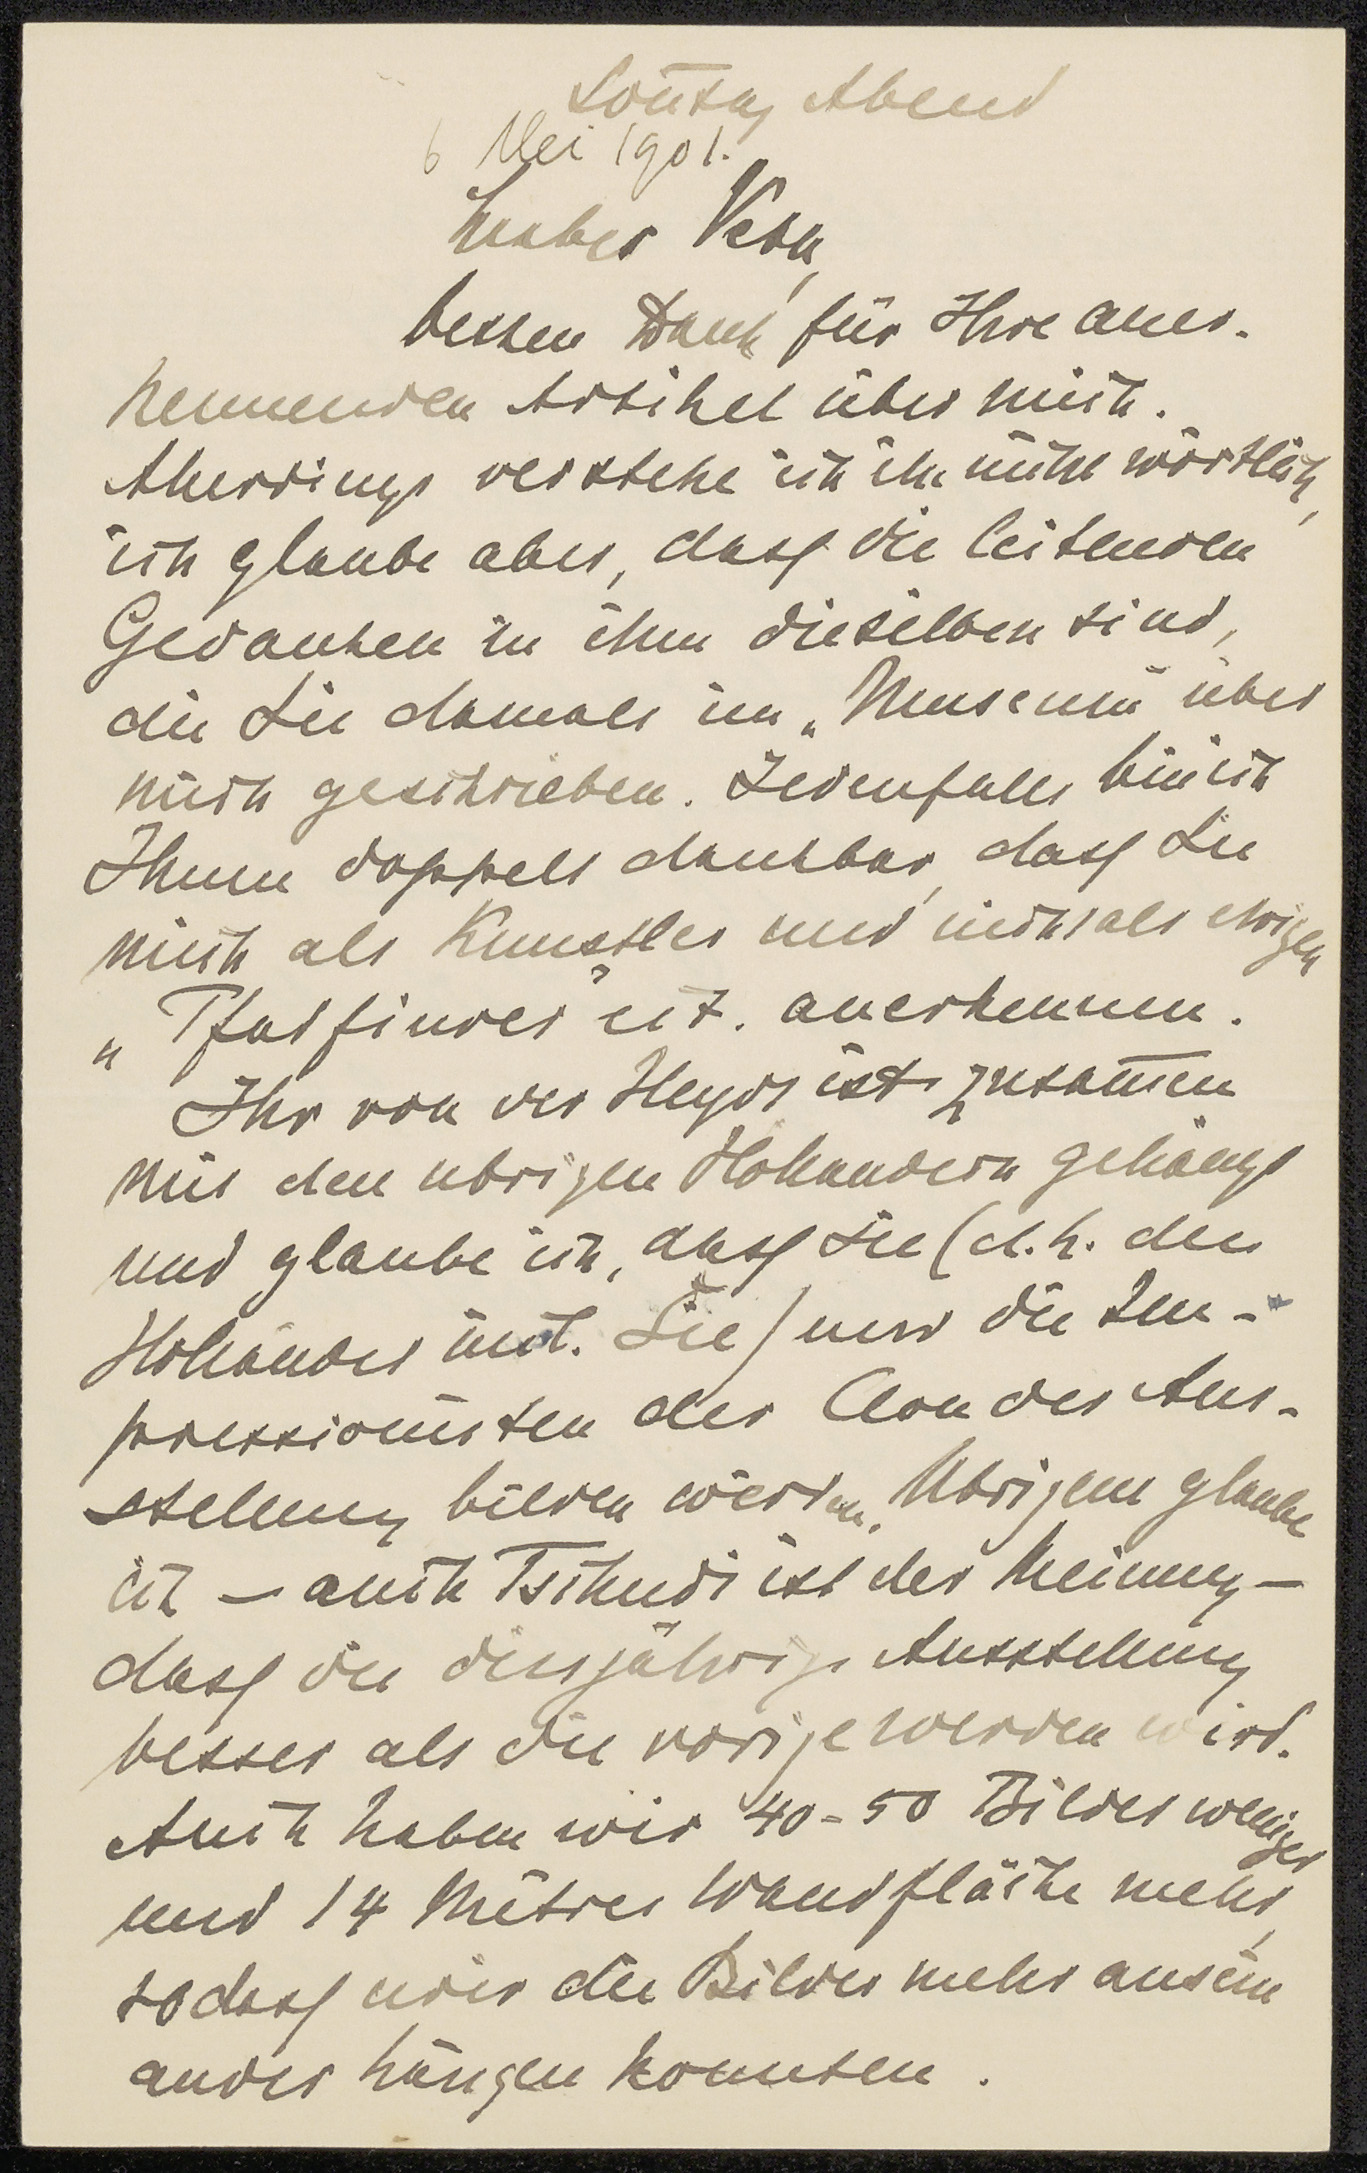 Sontag Abend
6 Mei 1901.
Lieber Veth,
besten Dank für Ihre aner-
kennenden Artikel über mich.
Allerdings verstehe ich ihn nicht wörtlich,
ich glaube aber, dass die leitenden
Gedanken in ihm dieselben sind,
die Sie damals im „Museum" über
mich geschrieben. Jedenfalls bin ich
Ihnen doppelt dankbar, dass Sie
mich als Künstler und nicht als ewigen
„Pfadfinder" etc. anerkennen.
Ihr von der Heydt ist zusamen
mit den übrigen Holländern gehängt
und glaube ich, dass Sie (d. h. die
Holländer incl. Sie) und die Im-
pressionisten der Clou der Aus-
stellung bilden werden. Übrigens glaube
ich – auch Tschudi ist der Meinung –
dass die diesjährige Ausstellung
besser als die vorige werden wird.
Auch haben wir 40-50 Bilder weniger
und 14 Mètres Wandfläche mehr,
sodass wir die Bilder mehr ausein
ander hängen konnten.